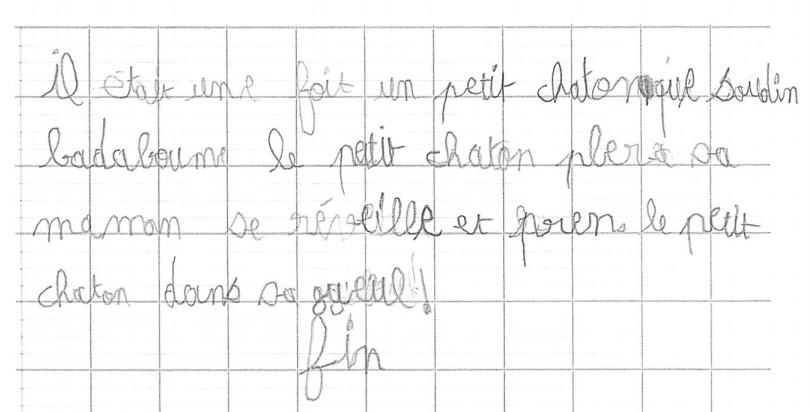 il était une foit un petit chaton que soudin
badaboume le petit chaton plera sa
maman se réveille et pren le petit
chaton dans sa gueul!
fin